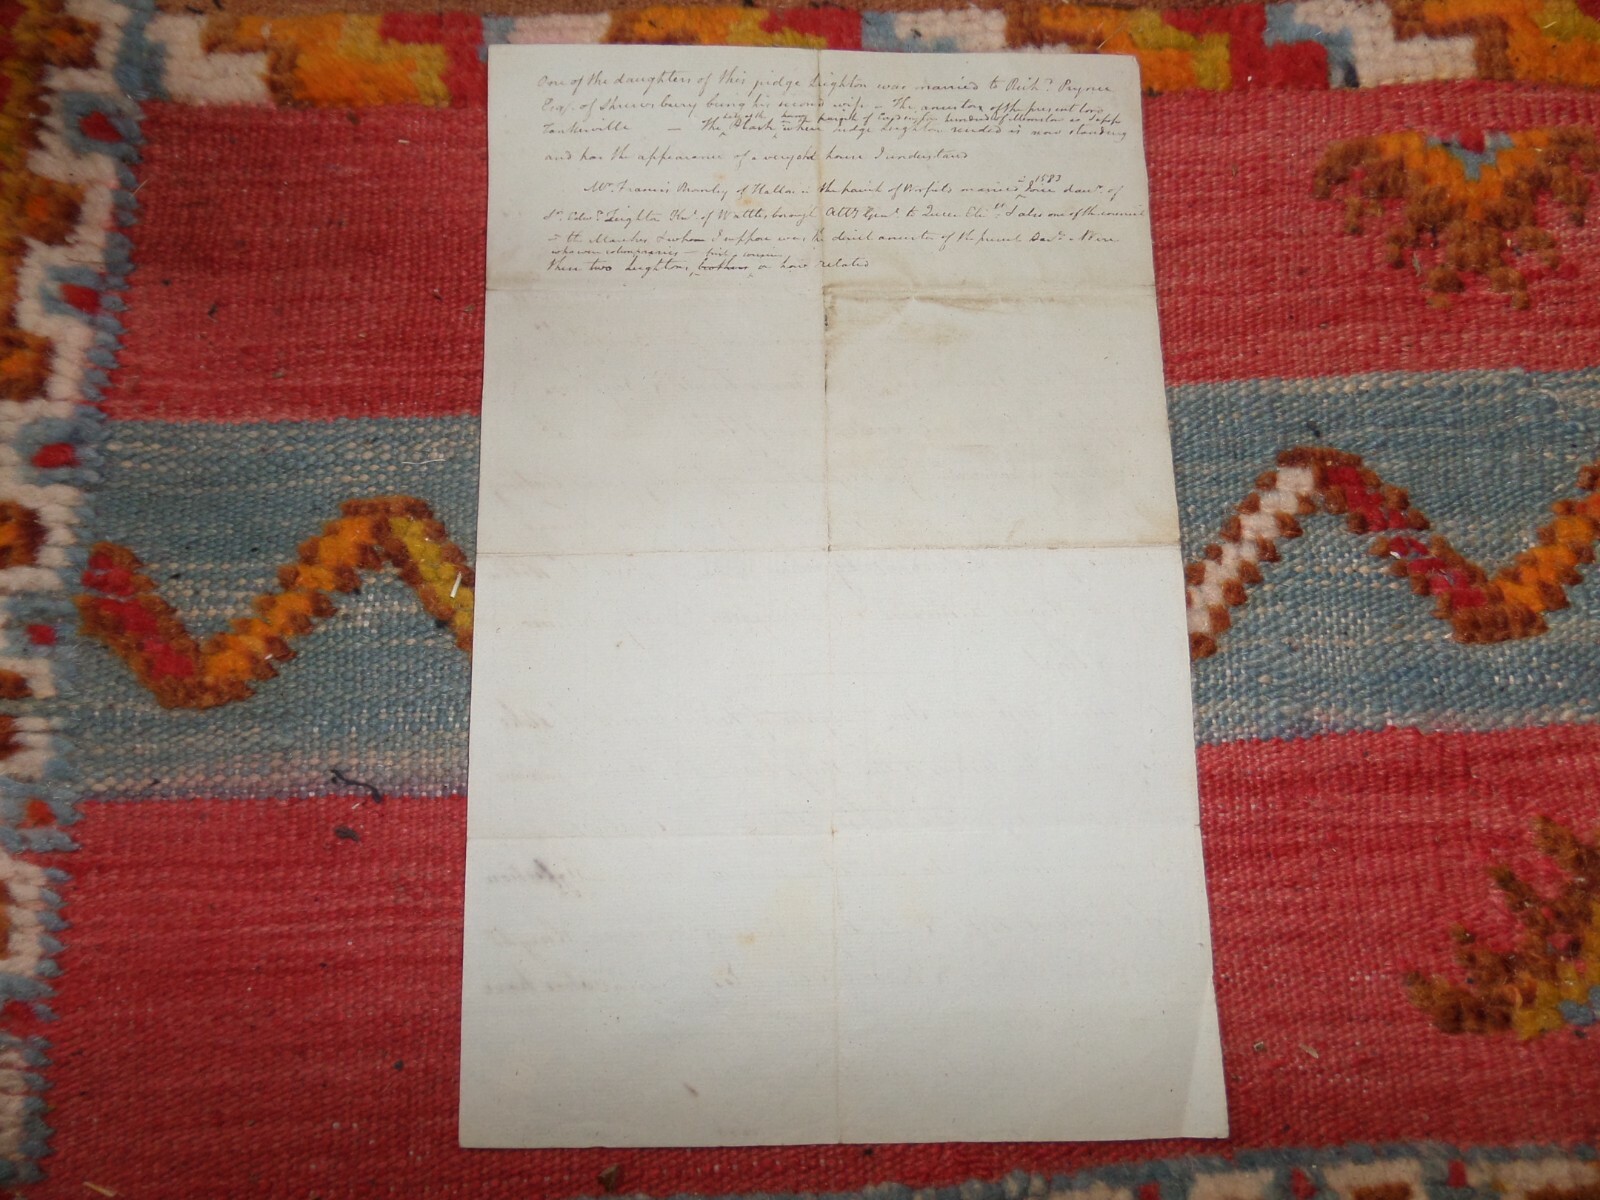 One of the daughters of this judge Leighton was married to Rich.d Prynce
Esq.r of Shrewsbury being his second wife — The ancestors of the present Lord
Tankerville — The Plash where judge Leighton resided is now standing
parish of Cardington hundred of Munslow
and has the appearance of a very old house I understand
Mr. Francis Bromley of Hallon in the parish of Worfield married Joice daur. of
1583
Sr. Edwd. Leighton Knt. of Wattlesborough Atty Genl. to Queen Eliz. & also one of the council
the Marches & whom I suppose was the direct ancestor of the present Bart. Were
who were cotemporaries — first cousins
these two Leightons brothers or how related